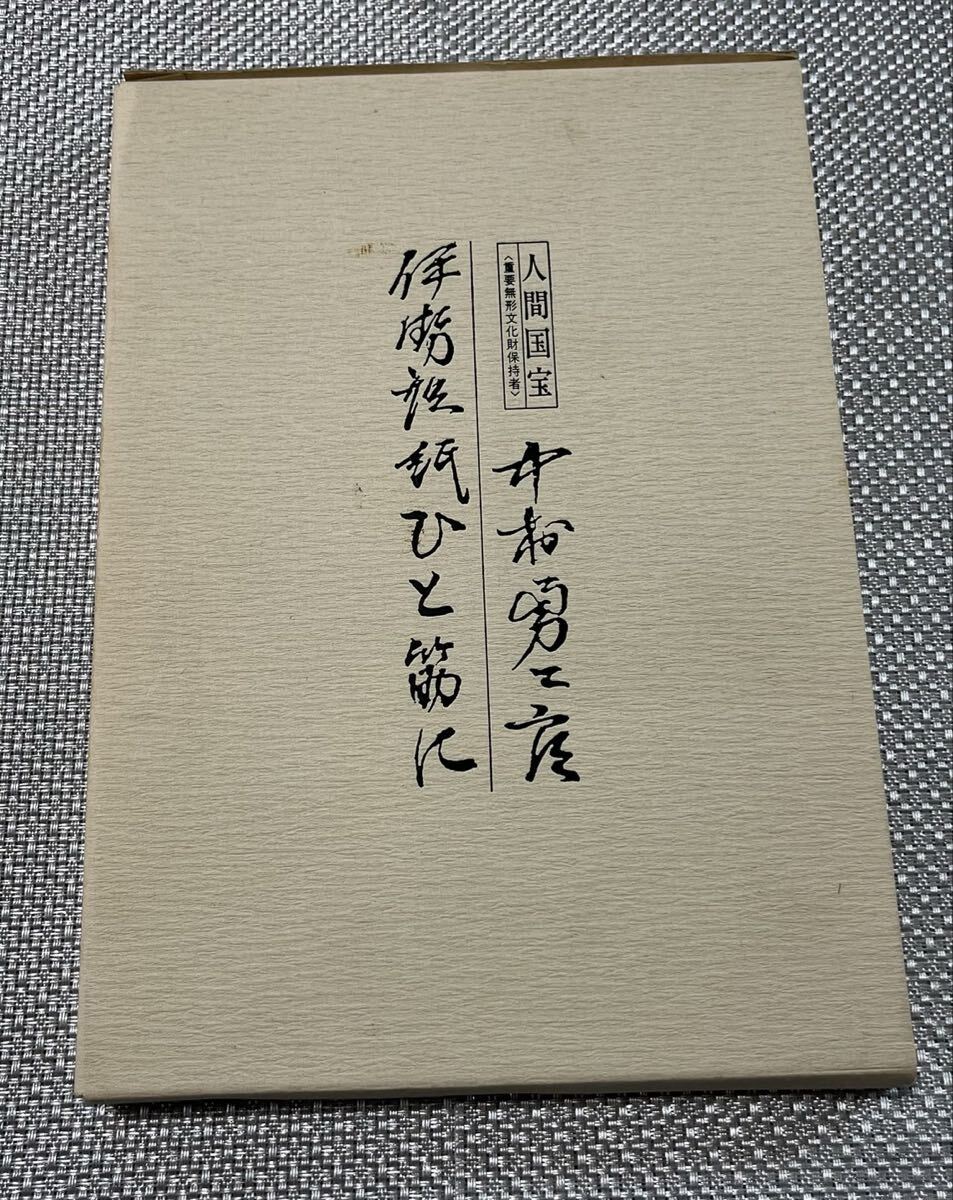 人間国宝
〈重要無形文化財保持者〉
中村勇二郎
伊勢型紙ひと筋に